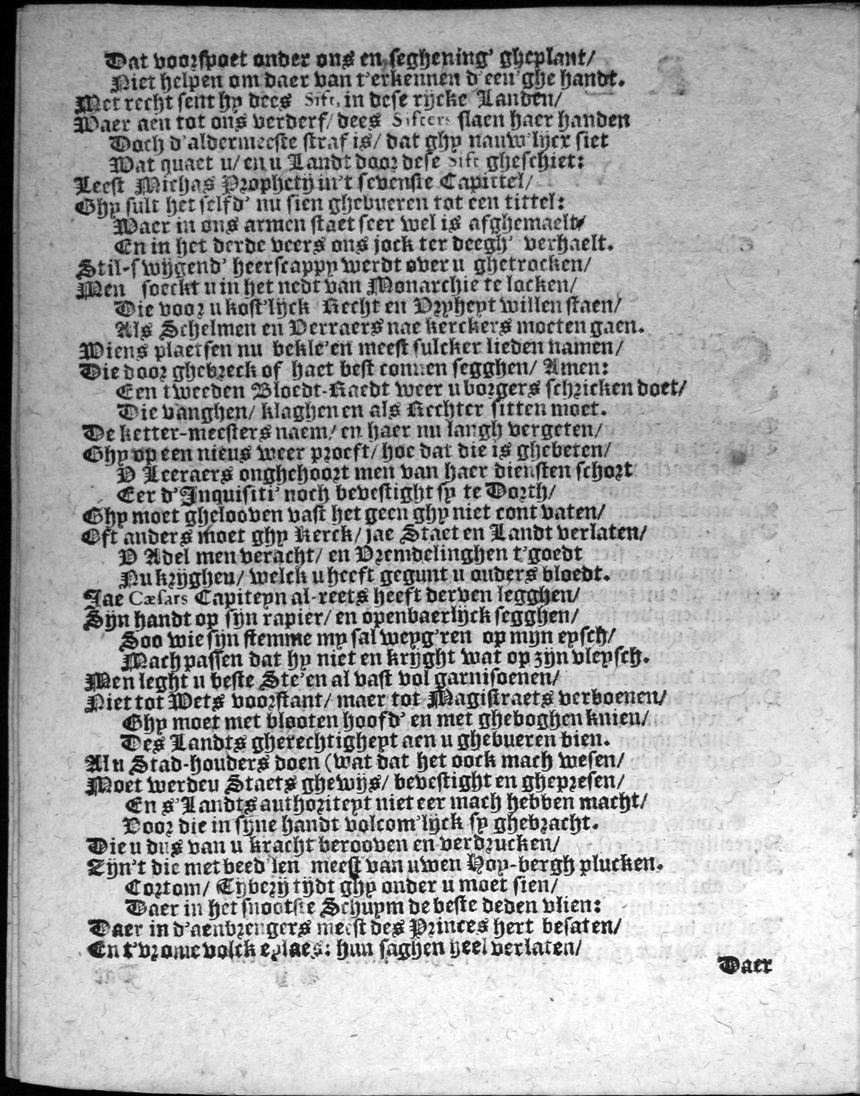 Dat voorspoet onder ons en seghening' gheplant/
Niet helpen om daer van t'erkennen d'een'ghe handt.
Met recht sent hy dees Sift, in dese rijcke Landen/
Waer aen tot ons verderf/ dees Sifters slaen haer handen
Doch d'aldermeeste straf is/ dat ghy nauw'lijcx siet
Wat quaet u/ en u Landt door dese Sift gheschiet:
Leest Michas Prophetij in't sevenste Capittel/
Ghy sult het selfd' nu sien ghebueren tot een tittel:
Waer in ons armen staet seer wel is afghemaelt/
En in het derde veers ons jock ter deegh' verhaelt.
Stil-swijgend' heerscappy werdt over u ghetrocken/
Men soeckt u in het nedt van Monarchie te locken/
Die voor u kost'lijck Recht en Vryheyt willen staen/
Als Schelmen en Verraers nae kerckers moeten gaen.
Wiens plaetsen nu bekle'en meest sulcker lieden namen/
Die door ghebreck of haet best connen segghen/ Amen:
Een tweeden Bloedt-Raedt weer u borgers schricken doet/
Die vanghen/ klaghen en als Rechter sitten moet.
De ketter-meesters naem/ en haer nu langh vergeten/
Ghy op een nieus weer proeft/ hoe dat die is ghebeten/
V Leeraers onghehoort men van haer diensten schort
Eer d'Inquisiti' noch bevestight sy te Dorth/
Ghy moet ghelooven vast het geen ghy niet cont vaten/
Oft anders moet ghy Kerck/ jae Staet en Landt verlaten/
V Adel men veracht/ en Vremdelinghen t'goedt
Nu krijghen/ welck u heeft gegunt u ouders bloedt.
Jae Cæsars Capiteyn al-reets heeft derven legghen/
Sijn handt op sijn rapier/ en openbaerlijck segghen/
Soo wie sijn stemme my sal weyg'ren op mijn eysch/
Mach passen dat hy niet en krijght wat op zijn vleysch.
Men leght u beste Ste'en al vast vol garnisoenen/
Niet tot Wets voorstant/ maer tot Magistraets verboenen/
Ghy moet met blooten hoofd' en met gheboghen knien/
Des Landts gherechtigheyt aen u ghebueren bien.
Al u Stad-houders doen (wat dat het oock mach wesen/
Moet werden Staets ghewijs/ bevestight en ghepresen/
En s'Landts authoriteyt niet eer mach hebben macht/
Voor die in sijne handt volcom'lijck sy ghebracht.
Die u dus van u kracht berooven en verdrucken/
Zijn't die met beed'len meest van uwen Hoy-bergh plucken.
Cortom/ Tyberij tijdt ghy onder u moet sien/
Daer in het snootste Schuym de beste deden vlien:
Daer in d'aenbrengers meest des Princes hert besaten/
En t'vrome volck eylaes: hun saghen heel verlaten/
Daer